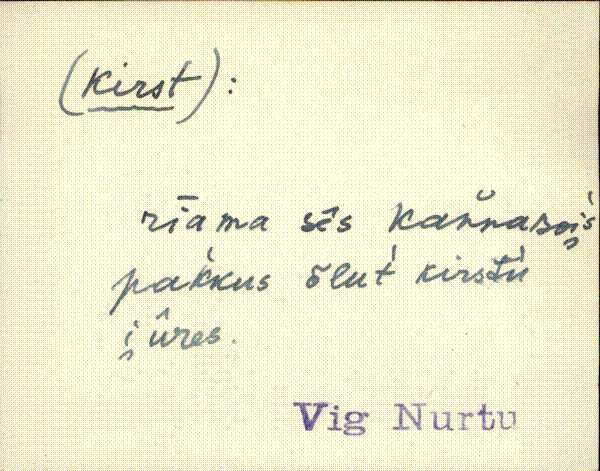 (kirst):
rīama sēs kan̆nasoi̯s
pak̀kus õlut̀ kirstù
i̯ûres.
Vig Nurtu